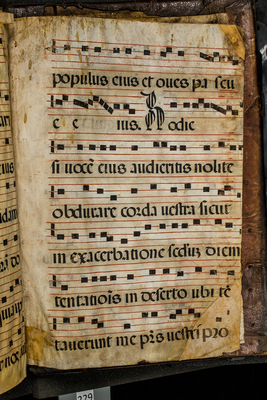 populus eius et oues pa scu
e e ius. Hodie
si uocẽ eius audieritis nolite
obdurare corda uestra sicut
in exacerbatione secũdũ diem
tentatiois in deserto ubi tẽ
tauerunt me pr̃s uestri pro
229